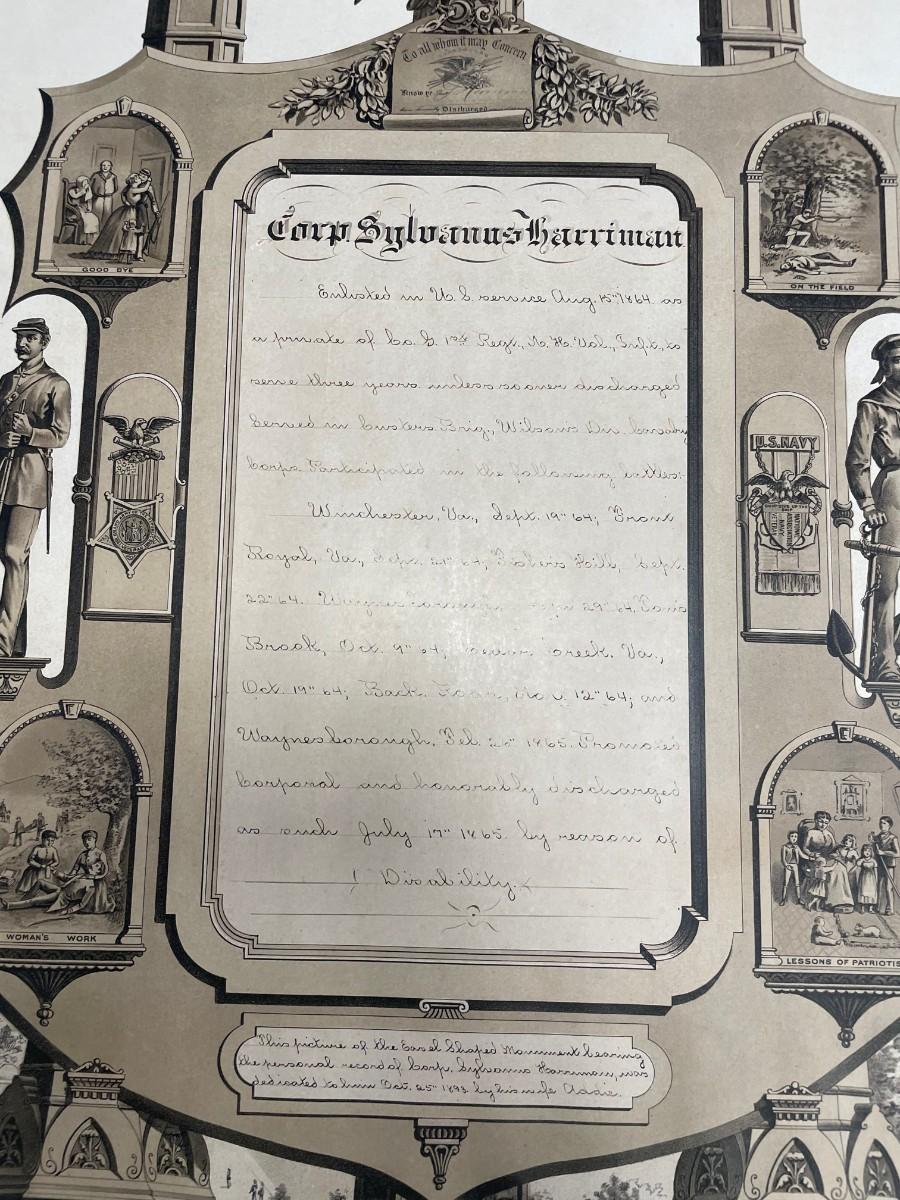 To all whom it may Concern
Know ye
Discharged
GOOD BYE
ON THE FIELD
Corp. Sylvanus Harriman
Enlisted in U. S. service Aug. 15" 1864 as
a private of Co. G. 1st Regt., N. H. Vol., Inft., to
serve three years unless sooner discharged
Served in Custers Brig., Wilsons Div. Cavalry
Corps. Participated in the following battles:
Winchester, Va., Sept. 19" 64; Front
Royal, Va., Sept. 21" 64; Fishers Hill, Sept.
22" 64. 29" 64, Toms
Brook, Oct. 9" 64; Cedar Creek, Va.,
Oct. 19" 64; Back Road, Nov. 12" 64; and
Waynesborough, Feb. 1865. Promoted
Corporal and honorably discharged
as such July 17" 1865 by reason of
Disability.
U.S. NAVY
WOMAN'S WORK
LESSONS OF PATRIOTIS
This picture of the Easel Shaped Monument bearing
the personal record of Corp. Sylvanus Harriman, was
dedicated to him Oct. 25" 1893. by his wife Addie.